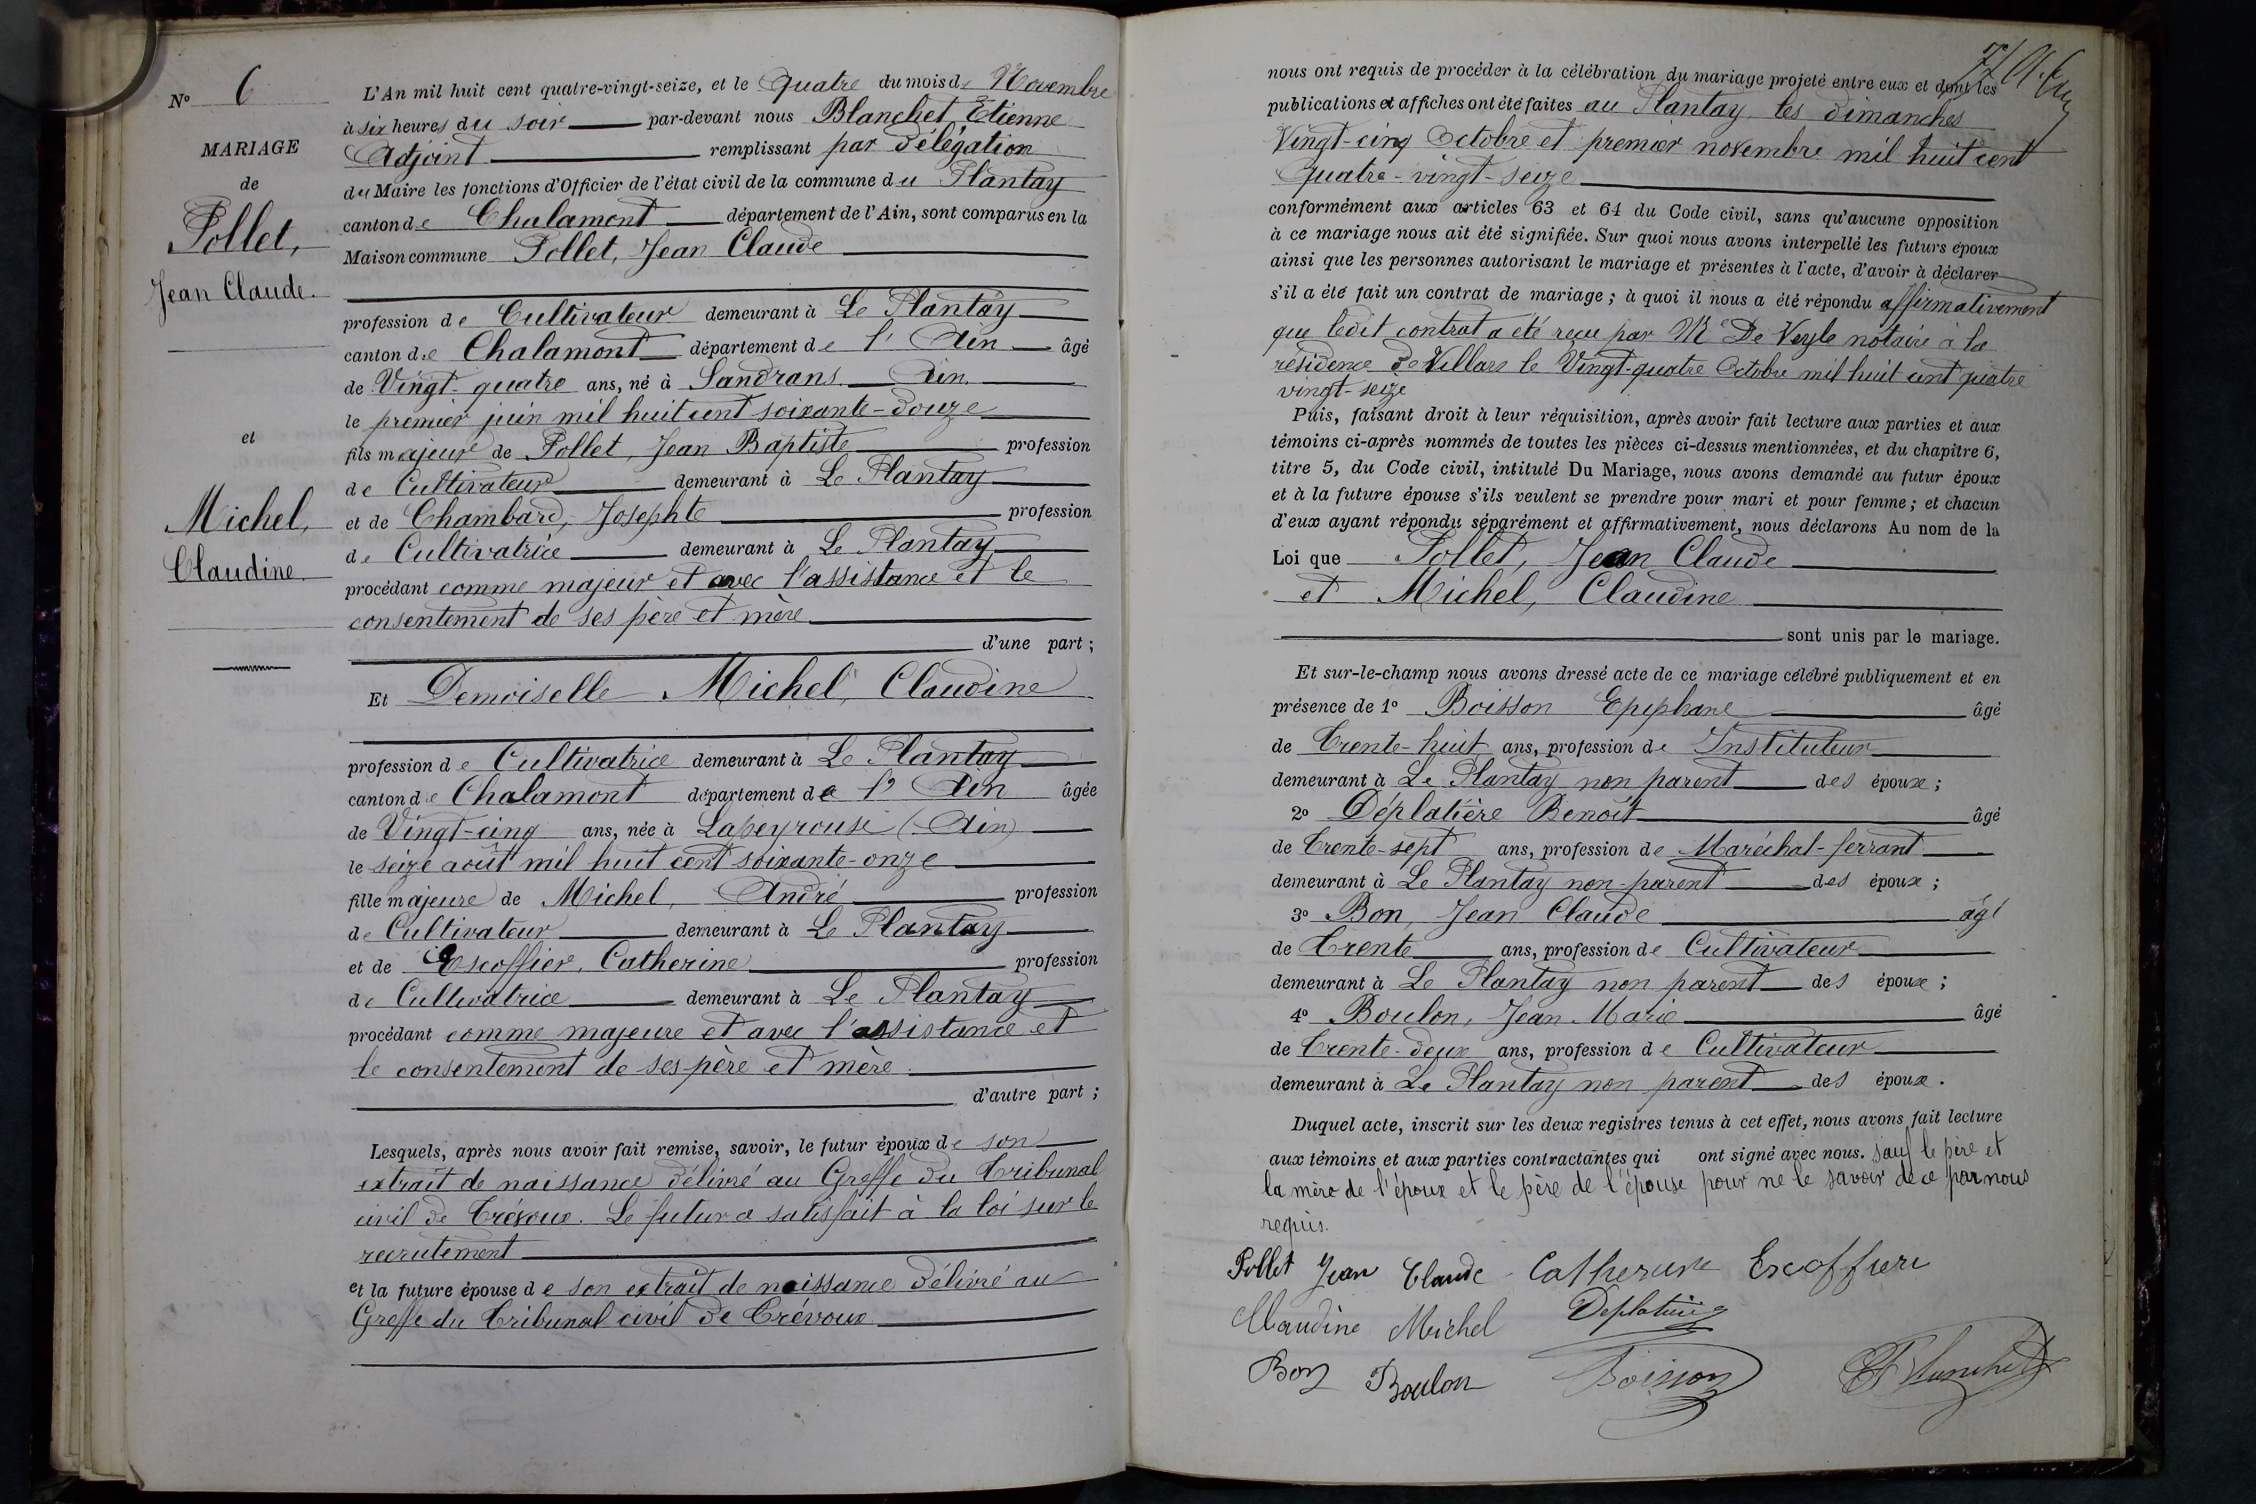 N° 6
MARIAGE
de
Pollet,
Jean Claude.
et
Michel,
Claudine
L'An mil huit cent quatre-vingt-seize, et le Quatre du mois de Novembre
à six heures du soir par-devant nous Blanchet Etienne
Adjoint remplissant par délégation
du Maire les fonctions d'Officier de l'état civil de la commune du Plantay
canton de Chalamont département de l'Ain, sont comparus en la
Maison commune Pollet, Jean Claude
profession de Cultivateur demeurant à Le Plantay
canton de Chalamont département de l'Ain âgé
de Vingt-quatre ans, né à Sandrans Ain
le premier juin mil huit cent soixante-douze
fils majeur de Pollet, Jean Baptiste profession
de Cultivateur demeurant à Le Plantay
et de Chambard, Josephte profession
de Cultivatrice demeurant à Le Plantay
procédant comme majeur et avec l'assistance et le
consentement de ses père et mère
d'une part ;
Et Demoiselle Michel, Claudine
profession de Cultivatrice demeurant à Le Plantay
canton de Chalamont département de l'Ain âgée
de Vingt-cinq ans, née à Lapeyrouse (Ain)
le seize août mil huit cent soixante-onze
fille majeure de Michel, André profession
de Cultivateur demeurant à Le Plantay
et de Escoffier, Catherine profession
de Cultivatrice demeurant à Le Plantay
procédant comme majeure et avec l'assistance et
le consentement de ses père et mère.
d'autre part ;
Lesquels, après nous avoir fait remise, savoir, le futur époux de son
extrait de naissance délivré au Greffe du Tribunal
civil de Trévoux. Le futur a satisfait à la loi sur le
recrutement
et la future épouse de son extrait de naissance délivré au
Greffe du Tribunal civil de Trévoux
nous ont requis de procéder à la célébration du mariage projeté entre eux et dont les
publications et affiches ont été faites au Plantay les dimanches
Vingt-cinq Octobre et premier novembre mil huit cent
quatre-vingt-seize
conformément aux articles 63 et 64 du Code civil, sans qu'aucune opposition
à ce mariage nous ait été signifiée. Sur quoi nous avons interpellé les futurs époux
ainsi que les personnes autorisant le mariage et présentes à l'acte, d'avoir à déclarer
s'il a été fait un contrat de mariage ; à quoi il nous a été répondu affirmativement
que ledit contrat a été reçu par Me De Veyle notaire à la
résidence de Villars le Vingt-quatre Octobre mil huit cent quatre
vingt-seize
Puis, faisant droit à leur réquisition, après avoir fait lecture aux parties et aux
témoins ci-après nommés de toutes les pièces ci-dessus mentionnées, et du chapitre 6,
titre 5, du Code civil, intitulé Du Mariage, nous avons demandé au futur époux
et à la future épouse s'ils veulent se prendre pour mari et pour femme ; et chacun
d'eux ayant répondu séparément et affirmativement, nous déclarons Au nom de la
Loi que Pollet, Jean Claude
et Michel, Claudine
sont unis par le mariage.
Et sur-le-champ nous avons dressé acte de ce mariage célébré publiquement et en
présence de 1° Boisson Epiphane âgé
de Trente-huit ans, profession de Instituteur
demeurant à Le Plantay non parent des époux ;
2° Déplatière Benoît âgé
de Trente-sept ans, profession de Maréchal-ferrant
demeurant à Le Plantay non parent des époux ;
3° Bon, Jean Claude âgé
de Trente ans, profession de Cultivateur
demeurant à Le Plantay non parent des époux ;
4° Boulon, Jean Marie âgé
de Trente-deux ans, profession de Cultivateur
demeurant à Le Plantay non parent des époux.
Duquel acte, inscrit sur les deux registres tenus à cet effet, nous avons fait lecture
aux témoins et aux parties contractantes qui ont signé avec nous. sauf le père et
la mère de l'époux et le père de l'épouse pour ne le savoir de ce par nous
requis.
Pollet Jean Claude Catherine Escoffier
Claudine Michel Deplatière
Bon Boulon Boisson E Blanchet